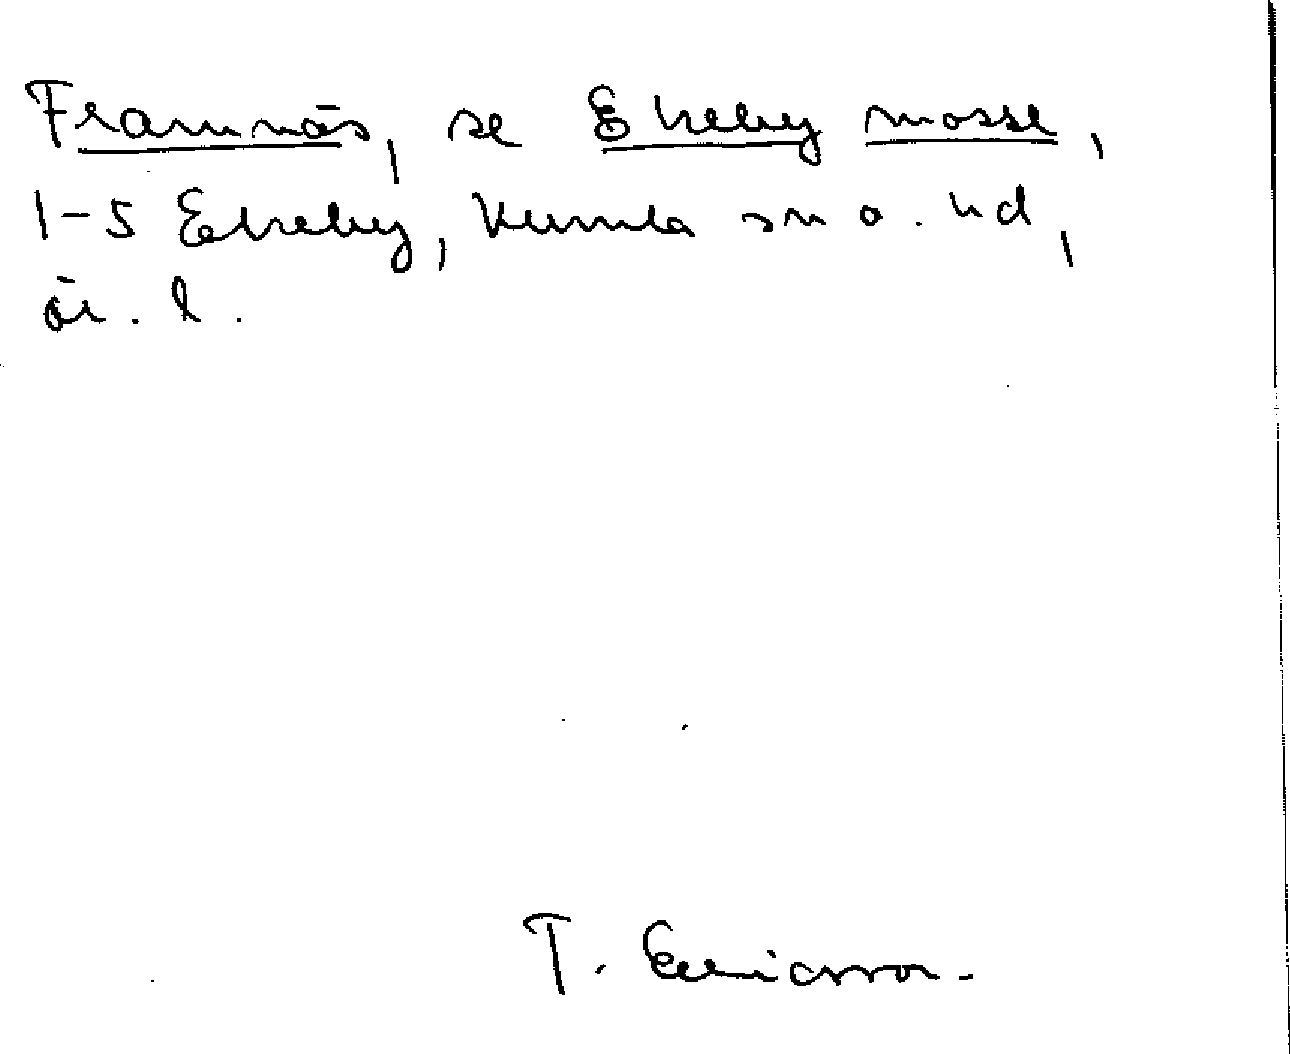 Framnäs, se Ekeby mosse,
1-5 Ekeby, Kumla sn o. hd,
ör. l.
T. Ericsson.